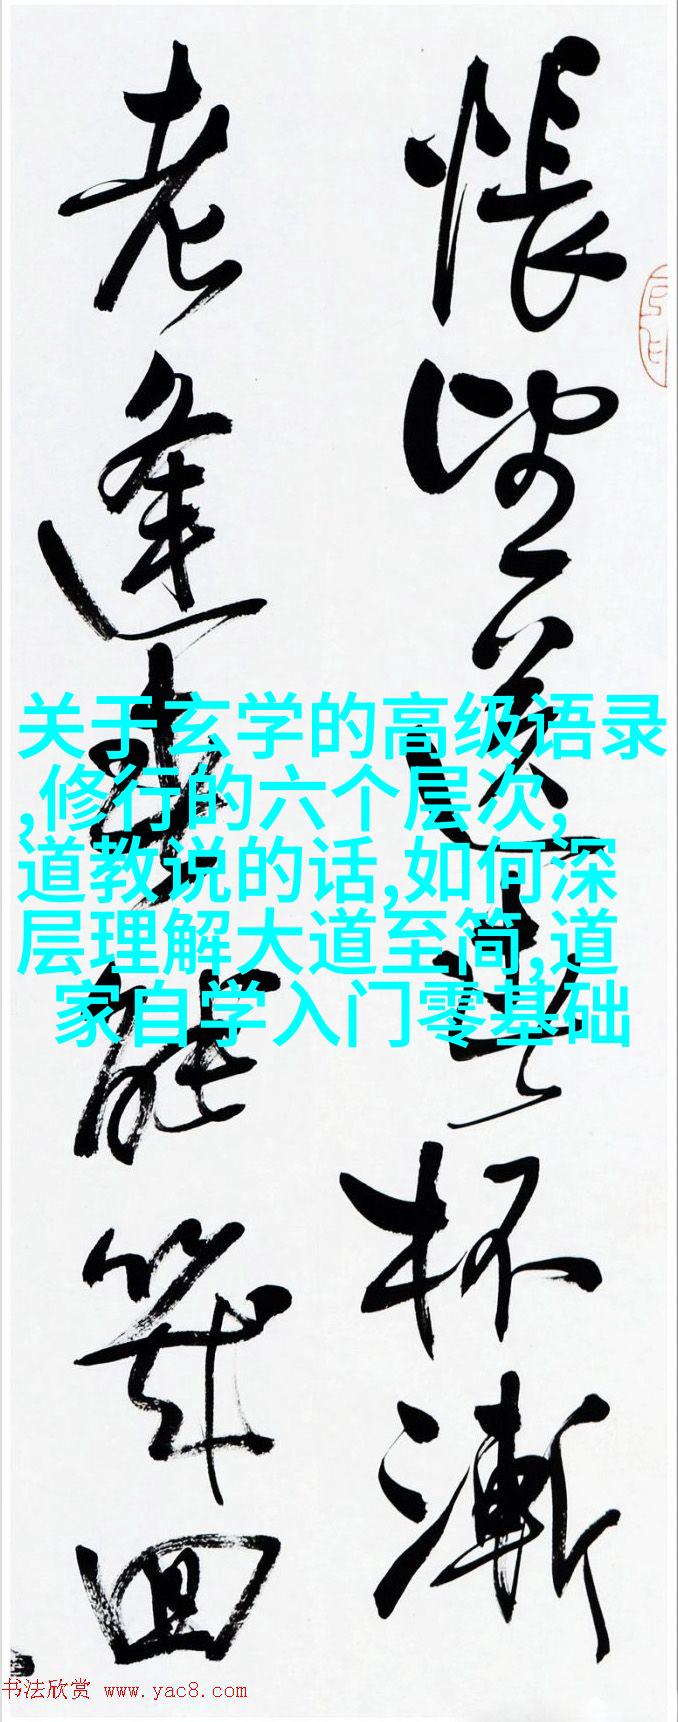 悵望送春杯漸
老逢春能幾回
关于玄学的高级语录
,修行的六个层次,
道教说的话,如何深
层理解大道至简,道
家自学入门零基础
书法欣赏 www.yac8.com